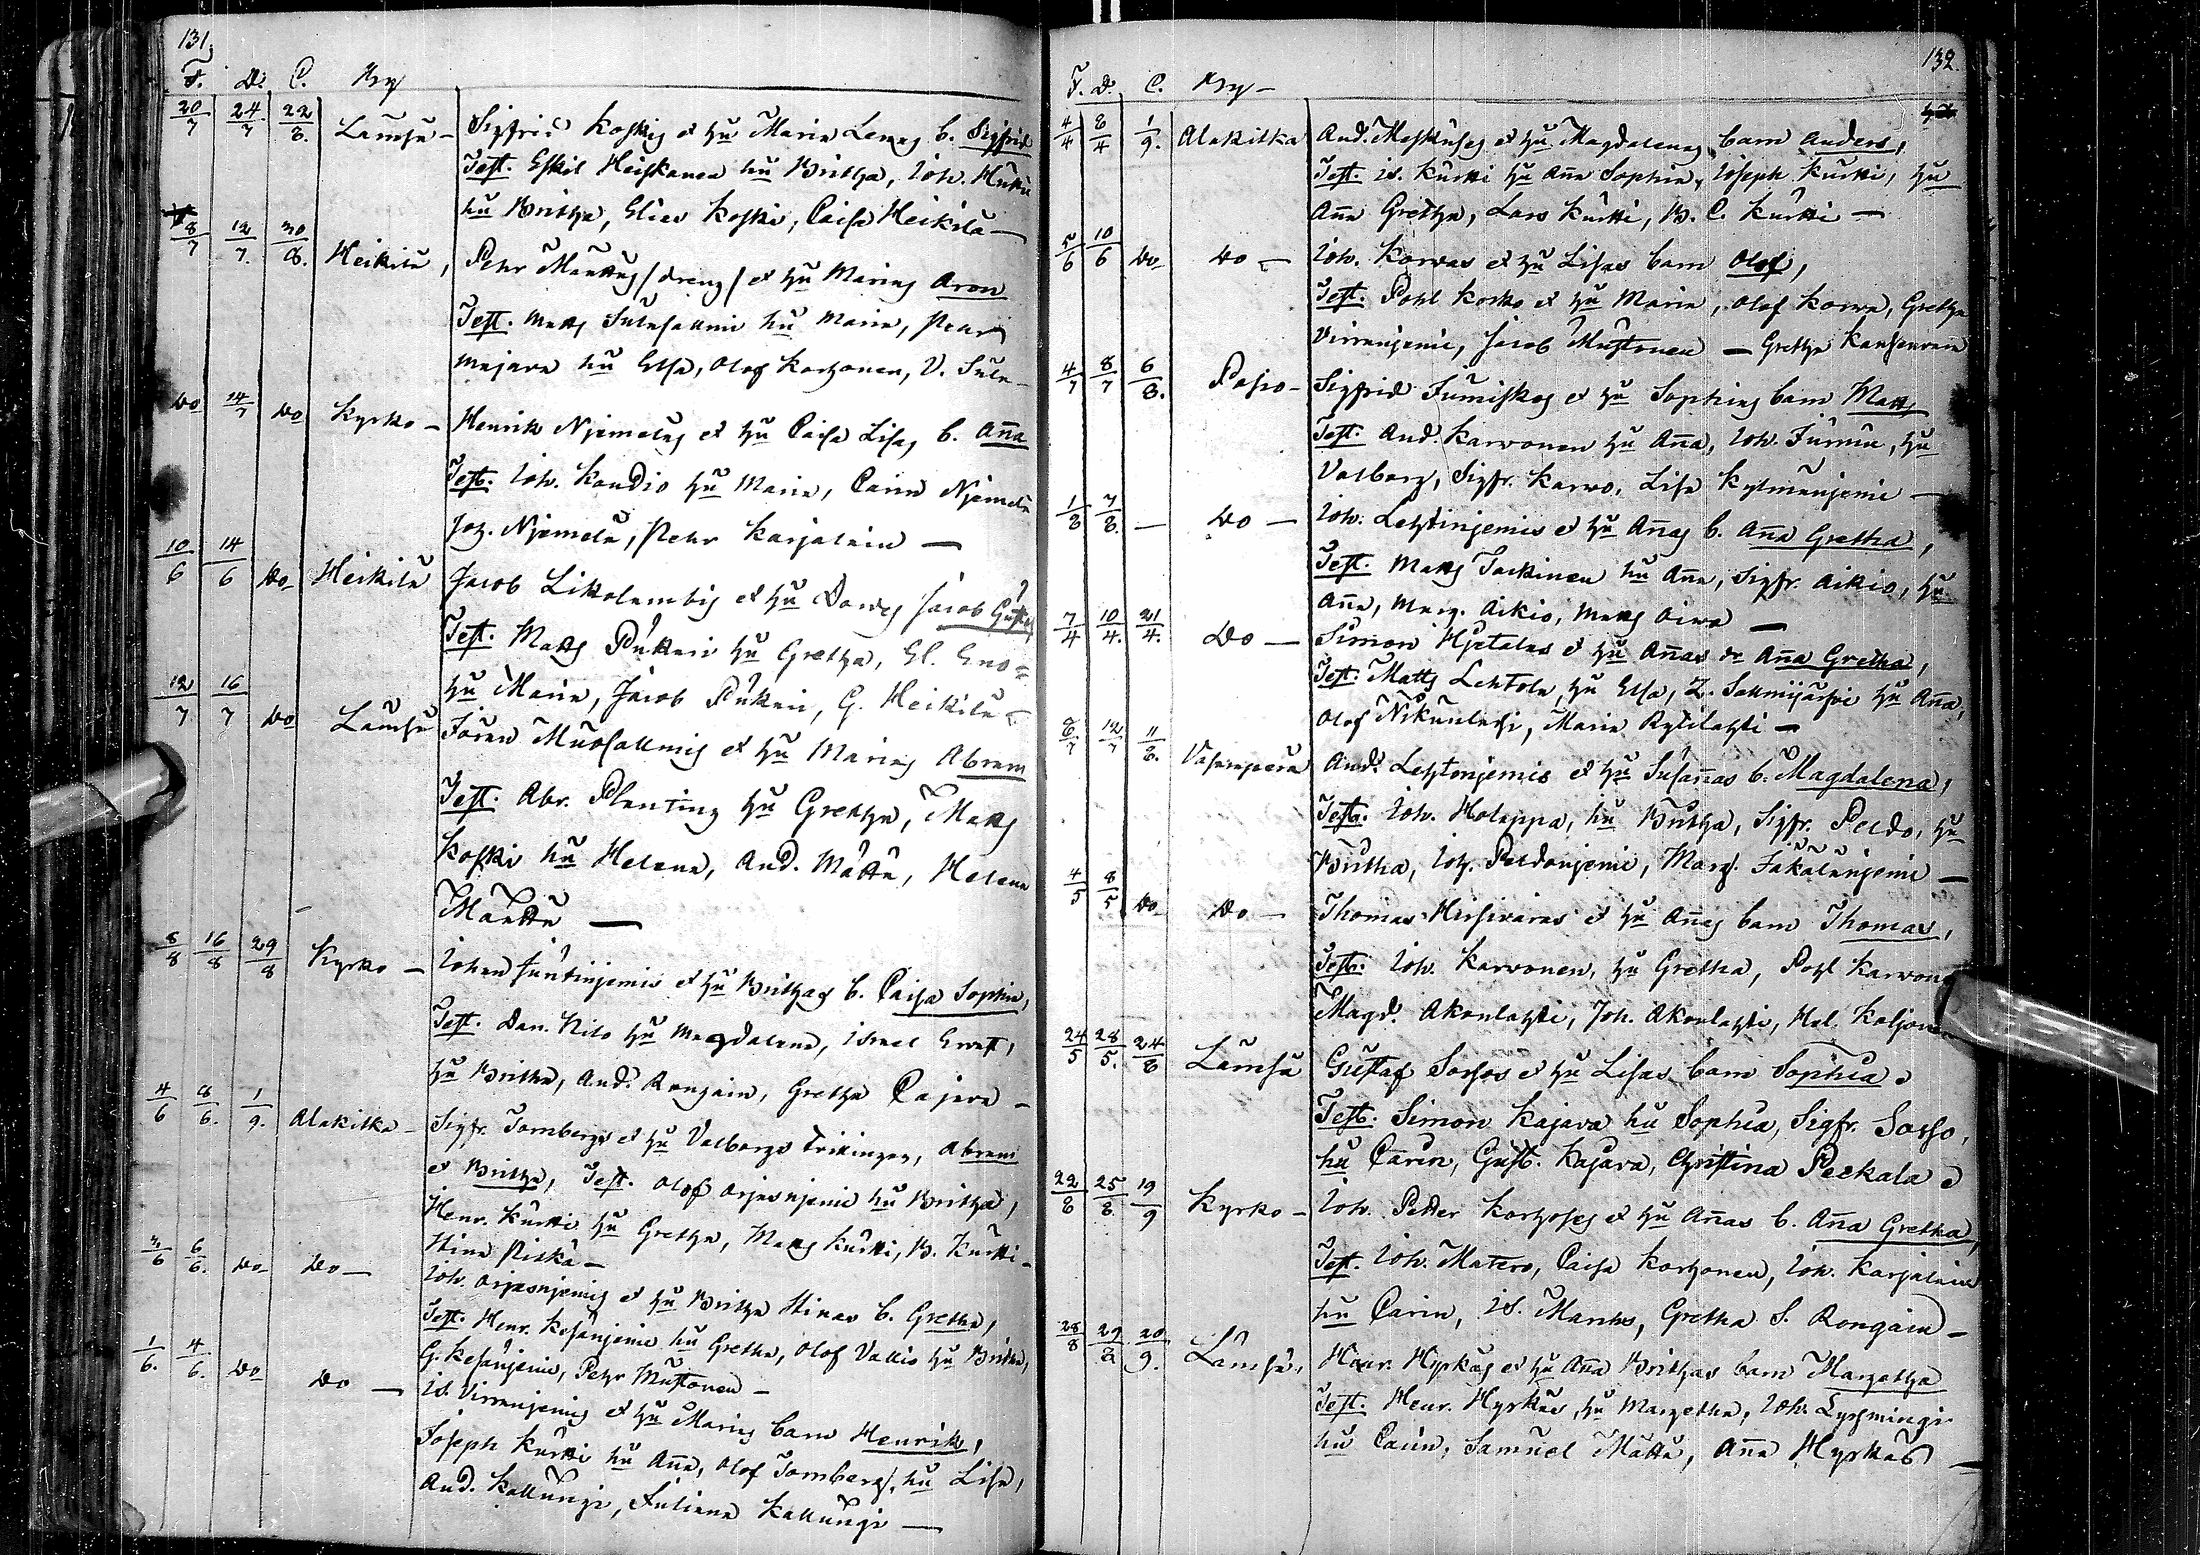 131.
F. D. C. By
20/7 24/7 22/8. Lämsä – Sigfrid Koskis et hu Maria Lenas b. Sigfrid
Test. Eskil Heiskanen hu Britha, Joh.
hu Britha, Elias Koski, Caisa Heikilä —
8/7 12/7. 30/8. Heikilä, Petr Määttäs /dreng/ et hu Marias Aron
Test. Matts hu Maria, Petr
Majava hu Elsa, Olof Korhonen, V.
Do 14/7 Do Kyrko – Henrik Njemeläs et hu Caisa Lisas b. Aña
Test. Joh. Kandio hu Maria, Carin Njemelä
Joh. Njemelä, Petr Karjalain —
10/6 14/6 Do Heikilä Jacob Likolambis et hu Jacob
Test. Matts Pukari hu Gretha, El. Eno-
hu Maria, Jacob Pukari, G. Heikilä
12/7 16/7 Do Lämsä Jöran Muosallmis et hu Marias Abram
Test. Abr. Planting hu Gretha, Matts
Koski hu Helena, And. Mättä, Helena
Määttä —
8/8 16/8 29/8 Kyrko – Johan Juntinjemis et hu Brithas b. Caisa Sophia,
Test. Dan. Kilo hu Magdalena, Israel Ervast,
hu Britha, And. Rongain, Gretha Cajava –
4/6 8/6. 1/9. Alakitka – Sigfr. Tornbergs et hu Valborgs, Abram
et Britha, Test. Olof Orjasnjemi hu Britha,
Henr. Kurtti hu Gretha, Matts Kurtti, B. Kurtti –
Stina Piskä –
3/6 6/6. Do Do — Joh. Orjasnjemis et hu Britha Stinas b. Gretha,
Test. Henr. Kesänjemi hu Gretha, Olof Vallio hu Britha,
G. Kesänjemi, Petr Mustonen –
1/6. 4/6. Do Do — Is. Virranjemis et hu Marias barn Henrik,
Joseph Kurtti hu Aña, Olof Tornberg, hu Lisa,
And. Kallungi, Juliana Kallungi —
132.
F. D. C. By –
4/4 8/4 1/9. Alakitka And. Moskuses et hu Magdalenas barn Anders,
Test. Is. Kurtti hu Aña Sophia, Joseph Kurtti, hu
Aña Gretha, Lars Kurtti, B. C. Kurtti —
5/6 10/6 Do Do – Joh. Korvas et hu Lisas barn Olof,
Test. Pohl Korko et hu Maria, Olof Korva, Gretha
Virranjemi, Jacob Mustonen — Gretha
4/7 8/7 6/8. Posio – Sigfrid Jumiskos et hu Sophias barn Matts
Test. And. Karvonen hu Aña, Joh. Jurmu, hu
Valborg, Sigfr. Karvo, Lisa Kylmänjemi —
1/8 7/8. — Do — Joh. Lehtinjemis et hu Añas b. Aña Gretha,
Test. Matts Tarkinen hu Aña, Sigfr. Aikio, hu
Aña, Marg. Aikio, Matts Oiva —
7/4 10/4. 21/4. Do — Simon Hjetalas et hu Añas dr Aña Gretha,
Test. Matts Lehtola hu Elsa, Z. Sallmijärvi hu Aña,
Olof, Maria Rytilahti –
8/7 12/7 11/8. Vasaraperä And. Lehtonjemis et hu Susañas b. Magdalena,
Test. Joh. Holappa, hu Britha, Sigfr. Peldo, hu
Britha, Joh. Peldonjemi, Marg. Jäkälänjemi —
4/5 8/5 Do Do — Thomas Hirsivaras et hu Añas barn Thomas,
Test. Joh. Karvonen, hu Gretha, Pohl Karvon
Magd. Akonlahti, Joh. Akonlahti, Hel.
24/5 28/5. 24/8 Lämsä Gustaf Sorsos et hu Lisas barn Sophia
Test. Simon Kajava hu Sophia, Sigfr. Sorso,
hu Carin, Gust. Kajava, Christina Peekala
22/8 25/8 19/9 Kyrko – Joh. Petter Korhoses et hu Añas b. Aña Gretha,
Test. Joh. Matero, Caisa Korhonen, Joh. Karjalain
hu Carin, Is. Mants, Gretha S. Rongain –
28/8 29/8 20/9. Lämsä, Henr. Hyrkäs et hu Aña Brithas barn Margetha
Test. Henr. Hyrkäs, hu Margetha, Joh. Kyhmingi
hu Carin, Samuel Mättä, Aña Hyrkäs —